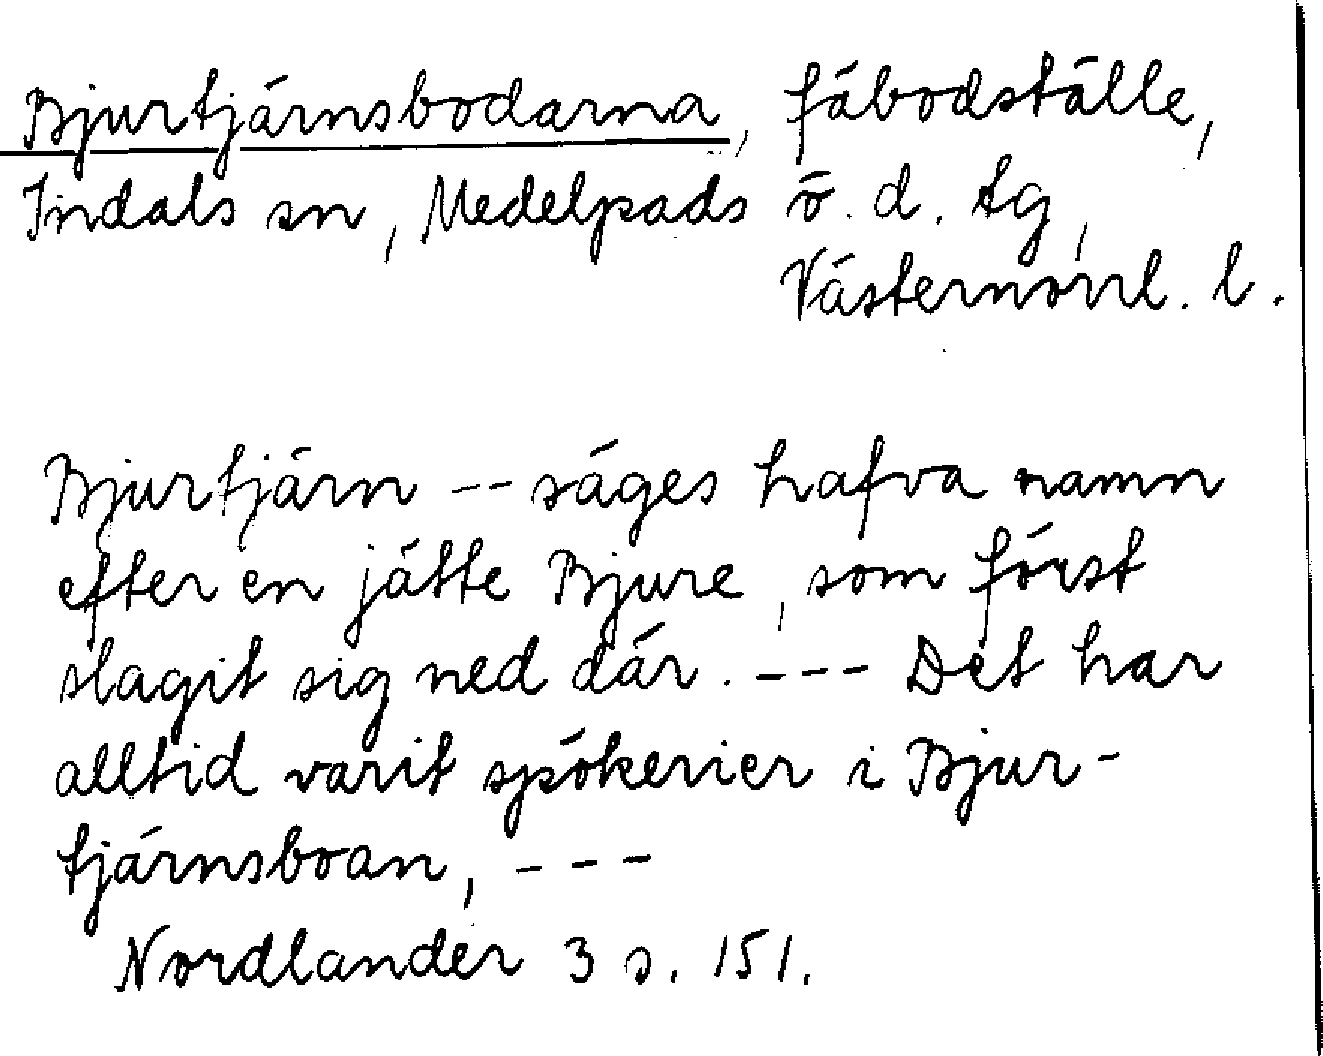 Bjurtjärnsbodarna, fäbodställe,
Indals sn, Medelpads ö. d. tg,
Västernorrl. l.
Bjurtjärn -- säges hafva namn
efter en jätte Bjure, som först
slagit sig ned där. --- Det har
alltid varit spökerier i Bjur-
tjärnsboan, ---
Nordlander 3 s. 151.